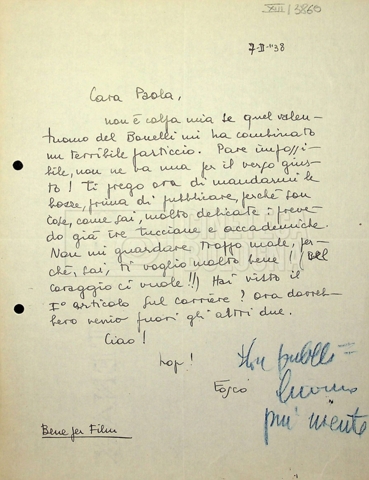 XIII/3860
7-II-'38
Cara Paola,
non è colpa mia se quel valen-
tuomo del Bonelli mi ha combinato
un terribile pasticcio. Pare impossi-
bile, non ne va una per il verso gius-
to! Ti prego ora di mandarmi le
bozze, prima di pubblicare, perché son
cose, come sai, molto delicate: preve-
do già ire tucciane e accademiche.
Non mi guardare troppo male, per-
ché, sai, ti voglio molto bene (bel
coraggio ci vuole!!) Hai visto il
I° articolo sul corriere? ora dovreb-
bero venir fuori gli altri due.
Ciao!
Fosco
più niente
Bene per Film